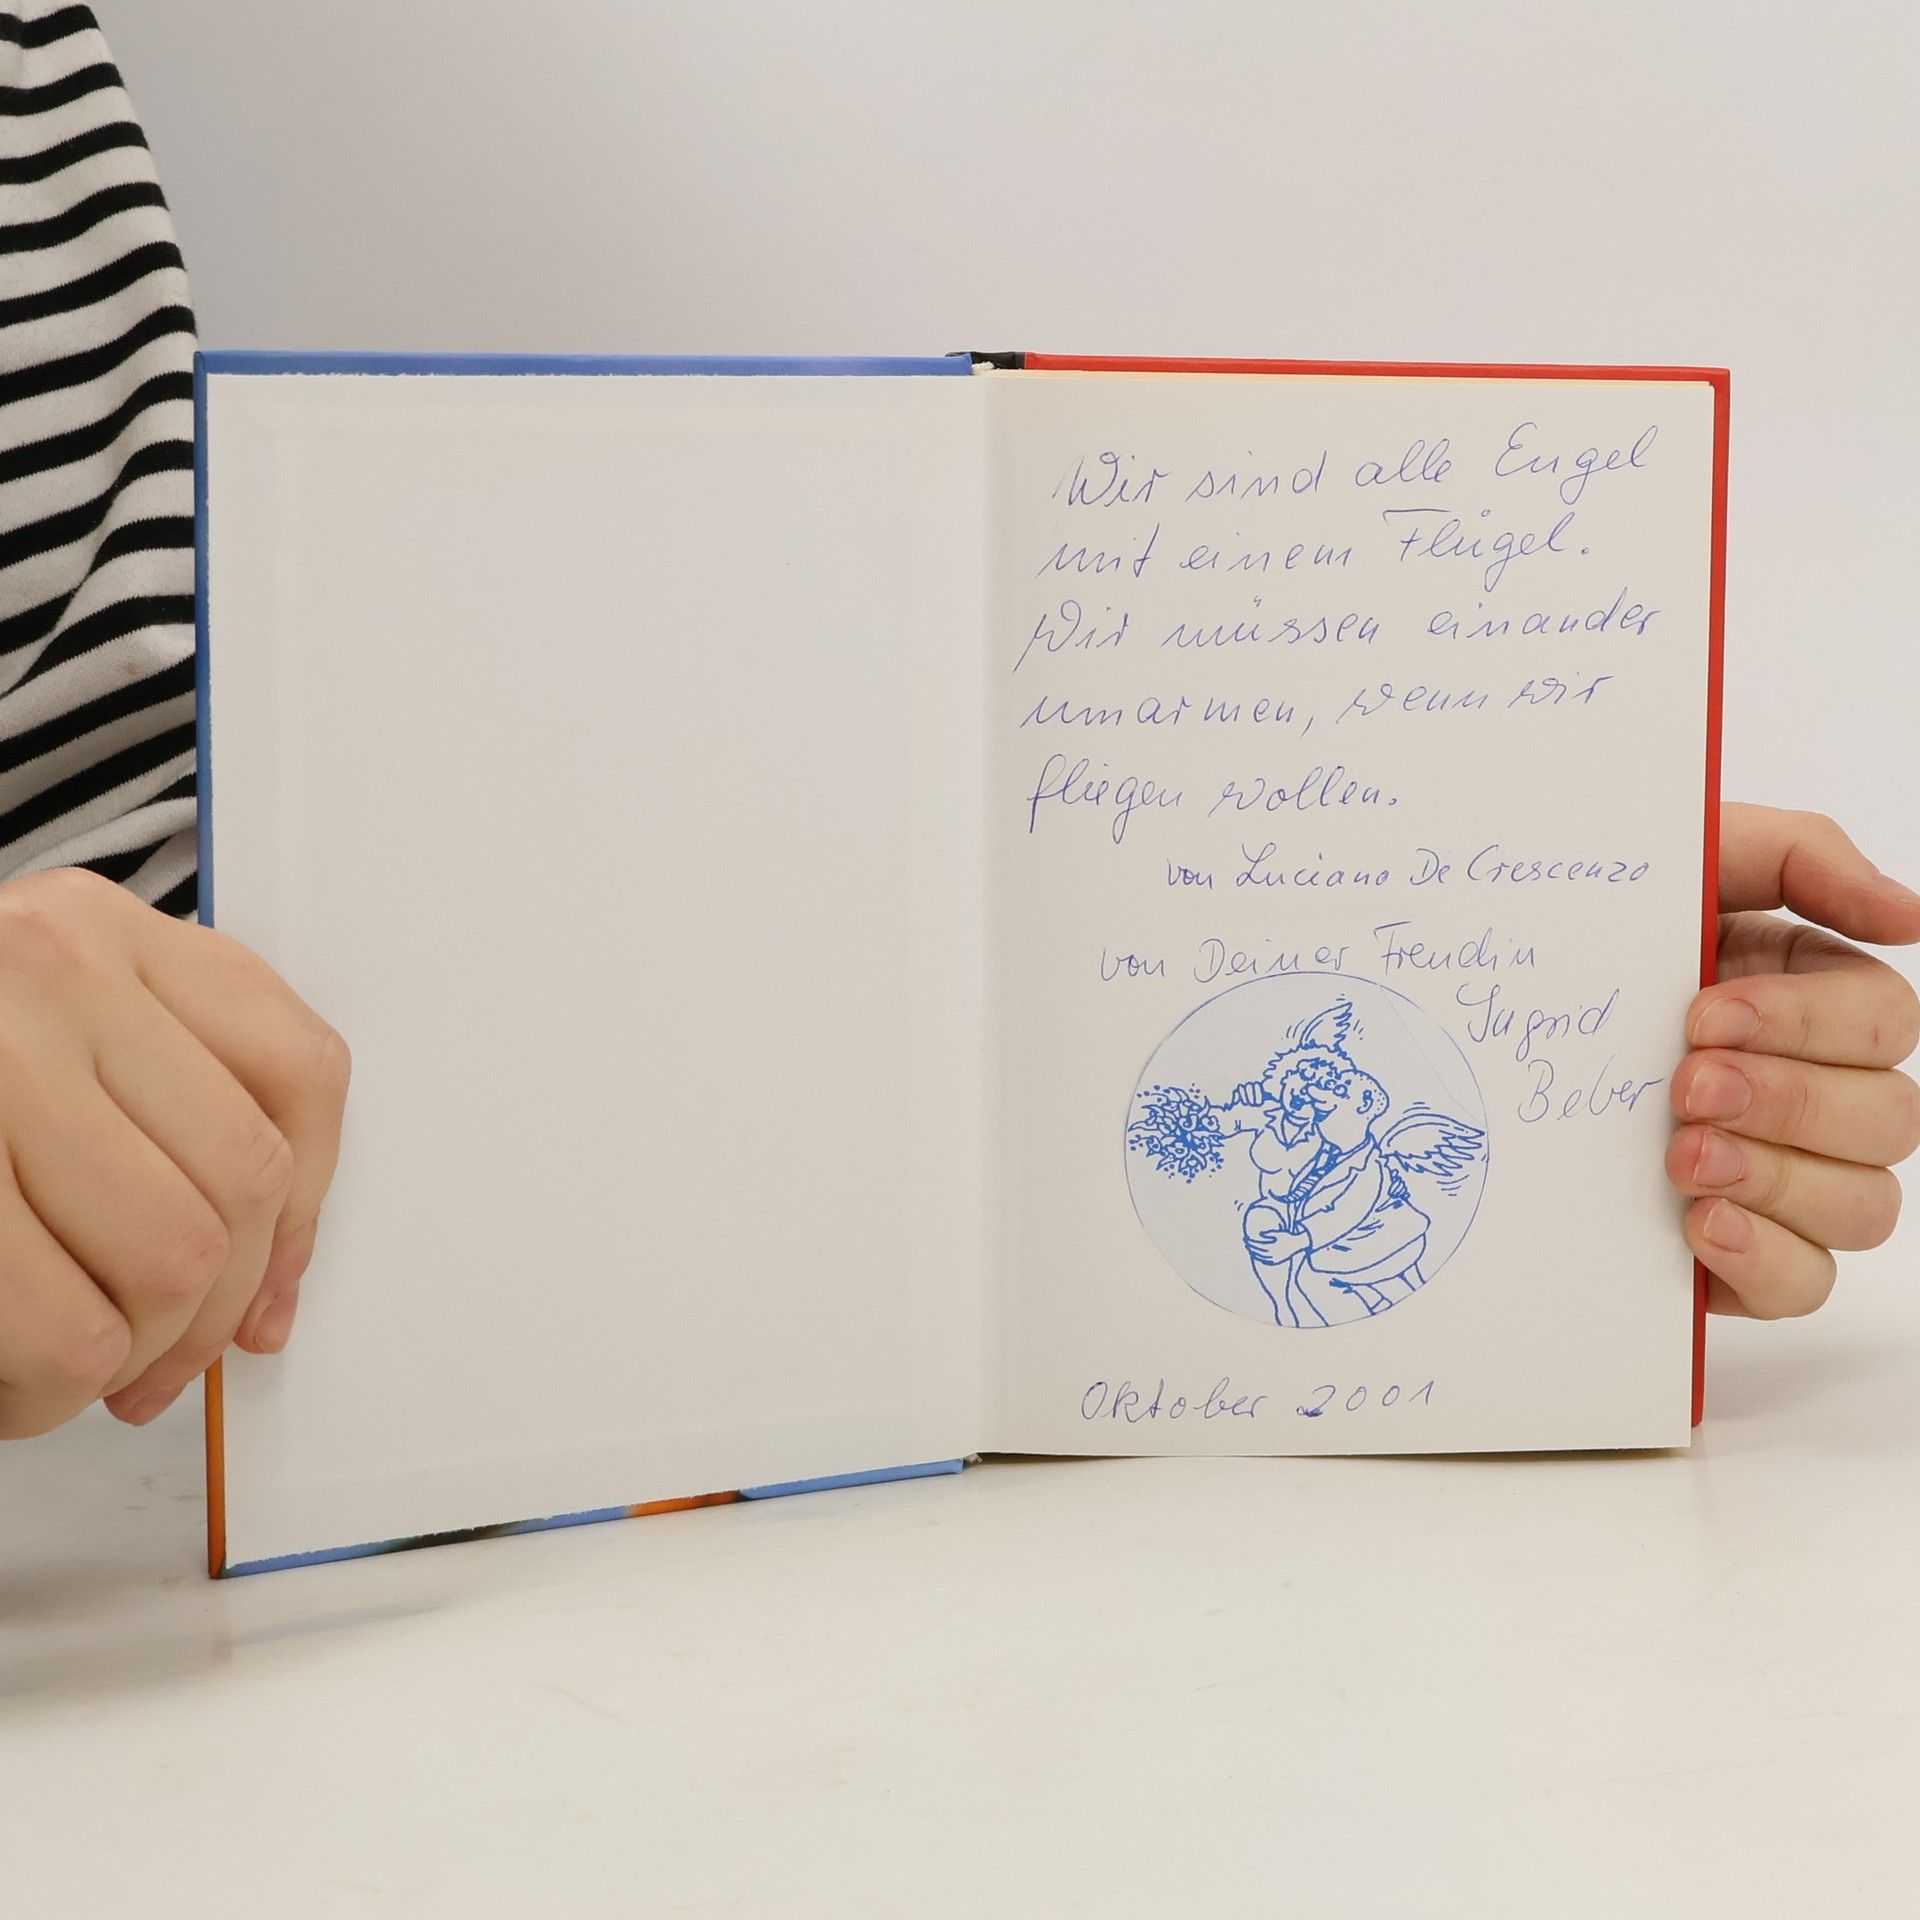 Wir sind alle Engel
mit einem Flügel.
Wir müssen einander
umarmen, wenn wir
fliegen wollen.
von Luciano De Crescenzo
von Deiner Freudin
Ingrid
Beber
Oktober 2001